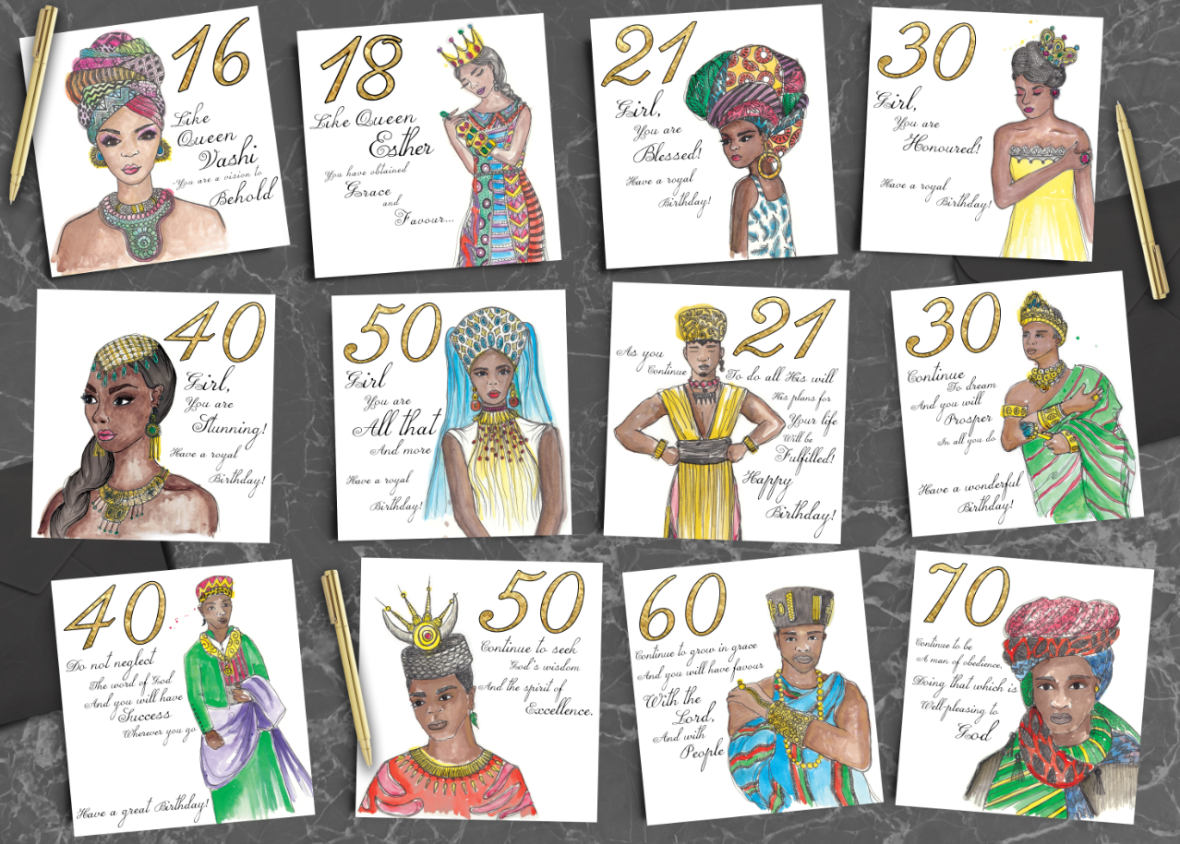 16
Like
Queen
Vashi
-You are a vision to
Behold
18
Like Queen
Esther
You have obtained
Grace
and
Favour...
21
Girl,
You are
Blessed!
Have a royal
Birthday!
30
Girl,
You are
Honoured!
Have a royal
Birthday!
40
Girl,
You are
Stunning!
Have a royal
Birthday!
50
Girl
You are
All that
And more
Have a royal
Birthday!
21
As you
Continue
To do all His will
His plans for
Your life
Will be
Fulfilled!
Happy
Birthday!
30
Continue
To dream
And you will
Prosper
In all you do
Have a wonderful
Birthday!
40
Do not neglect
The word of God
And you will have
Success
Wherever you go
Have a great Birthday!
50
Continue to seek
God's wisdom
And the spirit of
Excellence.
60
Continue to grow in grace
And you will have favour
With the
Lord,
And with
People
70
Continue to be
A man of obedience,
Doing that which is
Well-pleasing to
God